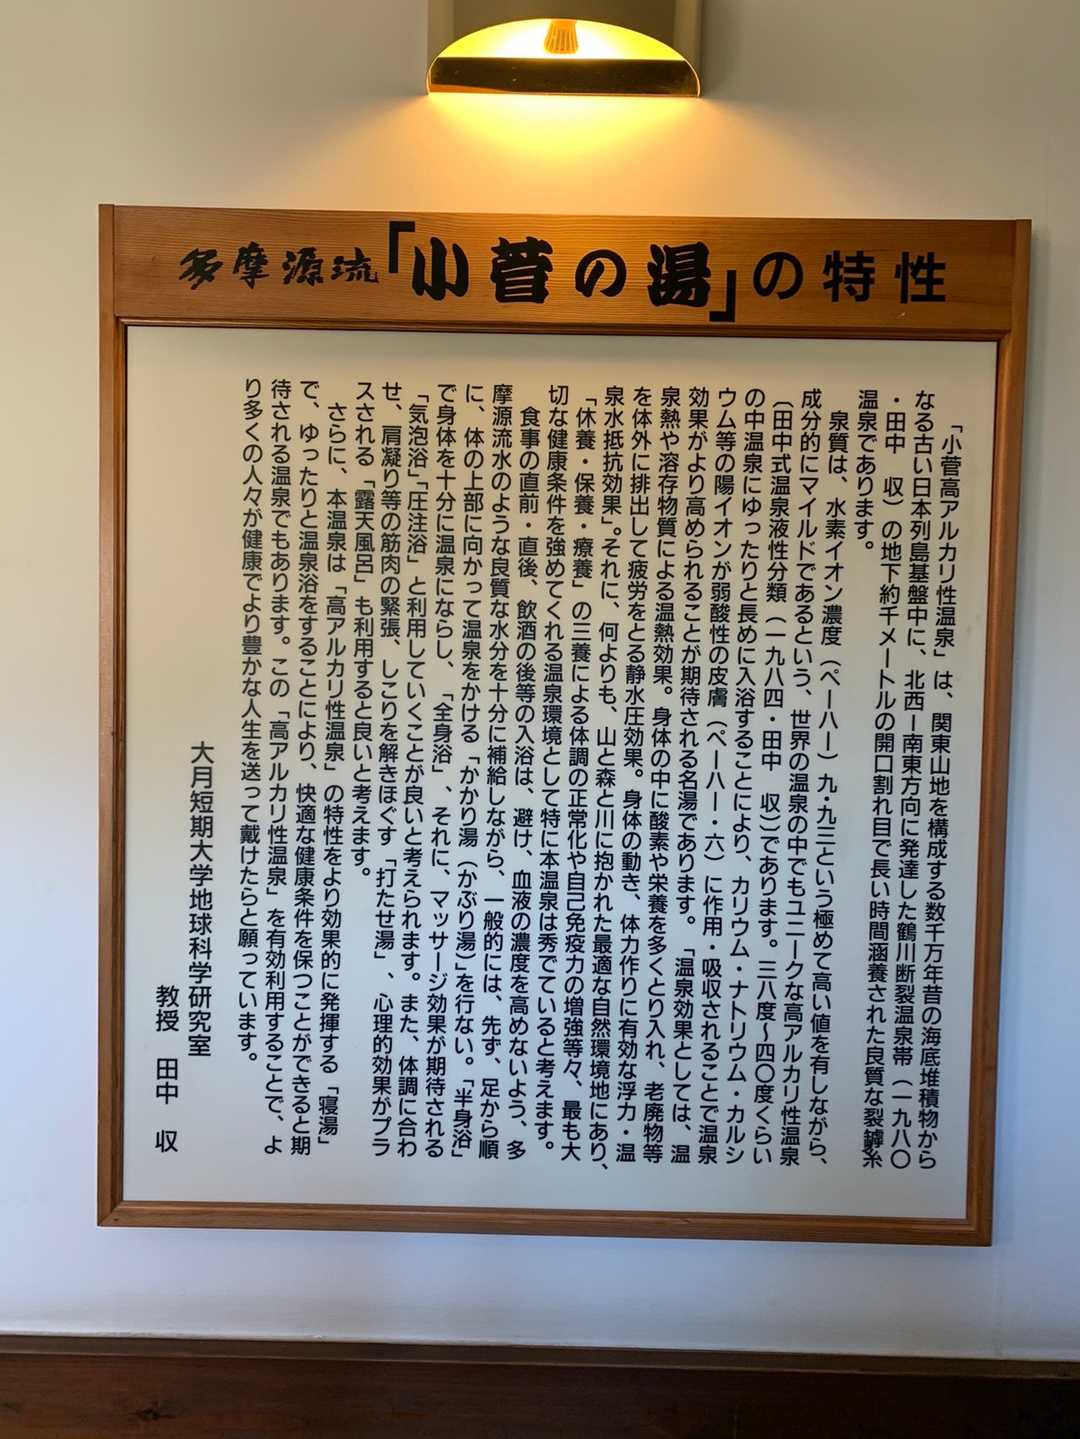 多摩源流「小菅の湯」の特性
「小菅高アルカリ性温泉」は、関東山地を構成する数千万年昔の海底堆積物から
なる古い日本列島基盤中に、北西ー南東方向に発達した鶴川断裂温泉帯（一九八〇
・田中　収）の地下約千メートルの開口割れ目で長い時間涵養された良質な裂罅系
温泉であります。
泉質は、水素イオン濃度（ペーハー）九・九三という極めて高い値を有しながら、
成分的にマイルドであるという、世界の温泉の中でもユニークな高アルカリ性温泉
（田中式温泉液性分類（一九八四・田中　収））であります。三八度〜四〇度くらい
の中温泉にゆったりと長めに入浴することにより、カリウム・ナトリウム・カルシ
ウム等の陽イオンが弱酸性の皮膚（ペーハー・六）に作用・吸収されることで温泉
効果がより高められることが期待される名湯であります。「温泉効果としては、温
泉熱や溶存物質による温熱効果。身体の中に酸素や栄養を多くとり入れ、老廃物等
を体外に排出して疲労をとる静水圧効果。身体の動き、体力作りに有効な浮力・温
泉水抵抗効果」。それに、何よりも、山と森と川に抱かれた最適な自然環境地にあり、
「休養・保養・療養」の三養による体調の正常化や自己免疫力の増強等々、最も大
切な健康条件を強めてくれる温泉環境として特に本温泉は秀でていると考えます。
食事の直前・直後、飲酒の後等の入浴は、避け、血液の濃度を高めないよう、多
摩源流水のような良質な水分を十分に補給しながら、一般的には、先ず、足から順
に、体の上部に向かって温泉をかける「かかり湯（かぶり湯）」を行ない。「半身浴」
で身体を十分に温泉にならし、「全身浴」、それに、マッサージ効果が期待される
「気泡浴」「圧注浴」と利用していくことが良いと考えられます。また、体調に合わ
せ、肩凝り等の筋肉の緊張、しこりを解きほぐす「打たせ湯」、心理的効果がプラ
スされる「露天風呂」も利用すると良いと考えます。
さらに、本温泉は「高アルカリ性温泉」の特性をより効果的に発揮する「寝湯」
で、ゆったりと温泉浴をすることにより、快適な健康条件を保つことができると期
待される温泉でもあります。この「高アルカリ性温泉」を有効利用することで、よ
り多くの人々が健康でより豊かな人生を送って戴けたらと願っています。
大月短期大学地球科学研究室
教授　田中　収